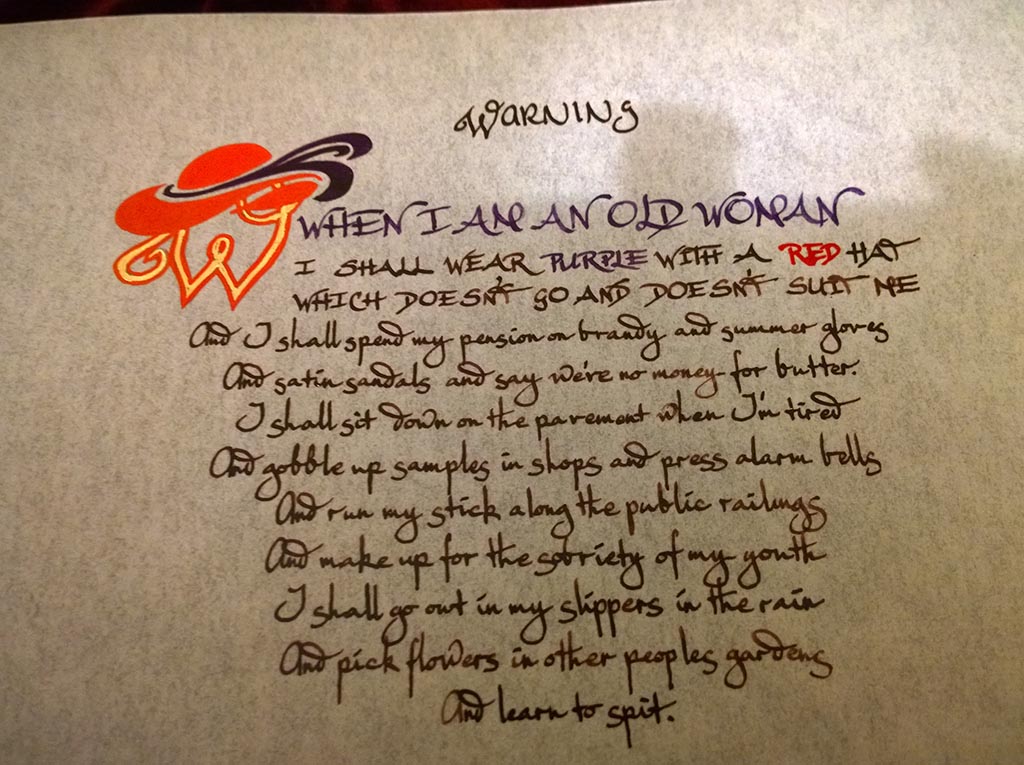 Warning
WHEN I AM AN OLD WOMAN
I SHALL WEAR PURPLE WITH A RED HAT
WHICH DOESN'T GO AND DOESN'T SUIT ME
And I shall spend my pension on brandy and summer gloves
And satin sandals and say we're no money for butter.
I shall sit down on the pavement when I'm tired
And gobble up samples in shops and press alarm bells
And run my stick along the public railings
And make up for the sobriety of my youth
I shall go out in my slippers in the rain
And pick flowers in other peoples gardens
And learn to spit.